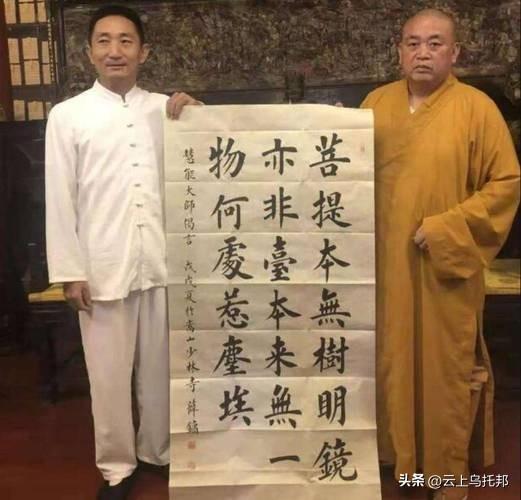 菩提本無樹明鏡
亦非臺本来無一
物何處惹塵埃
慧能大師偈言 戊戌夏於嵩山少林寺 薛
头条 @云上乌托邦